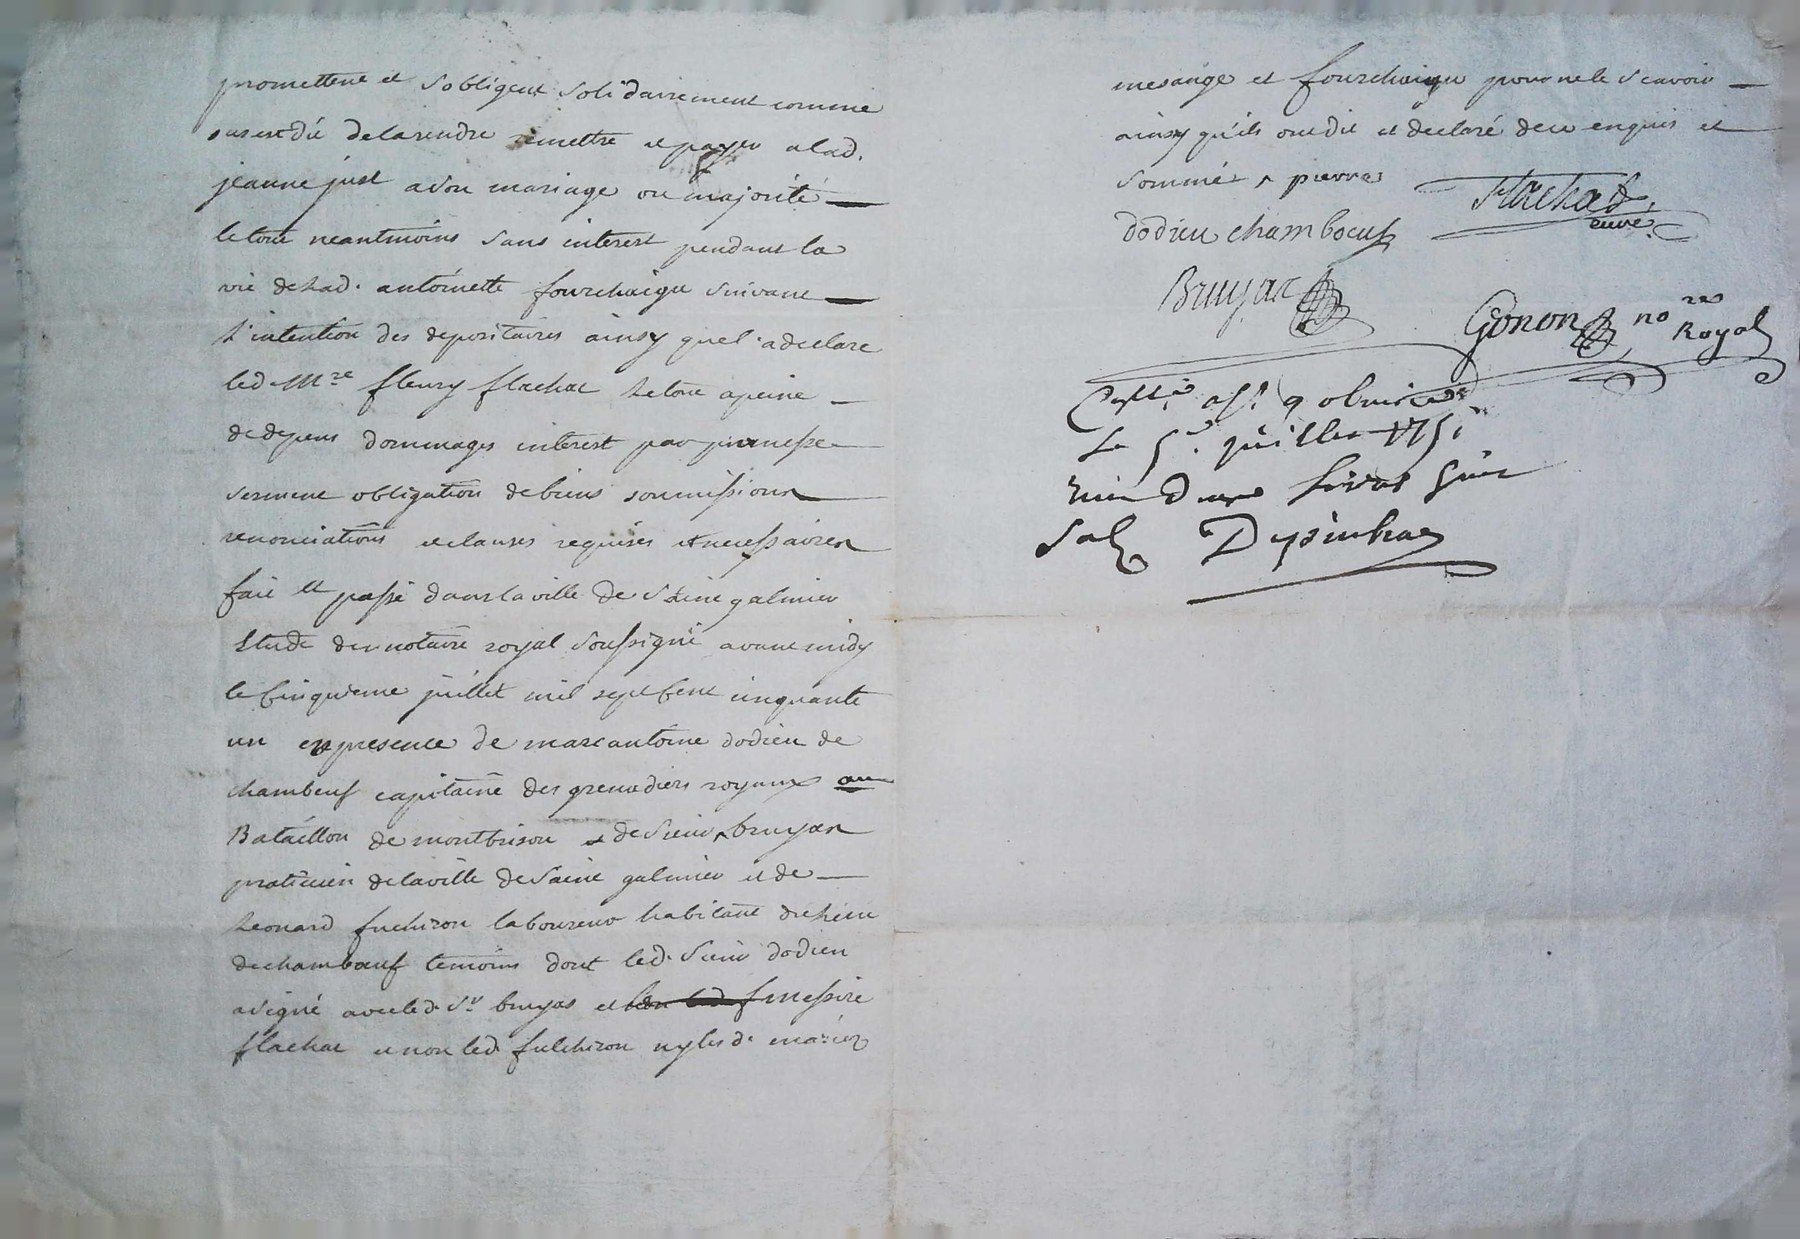 promettent et sobligent solidairement comme
susest dit de la rendre remettre et payer a lad.
jeanne just a son mariage ou majorité
le tout neantmoins sans interest pendant la
vie de lad. antoinette fourchaigu suivant
l'intention des depositaires ainsy quel a declare
led. Mre fleury flachat le tout a peine
de depens dommages interest par promesse
serment obligation de biens soumissions
renonciations et clauses requises et necessaires
fait et passé dans la ville de Saint galmier
Etude du notaire royal soussigné avant midy
le Cinquieme juillet mil sept Cent cinquante
un en presence de marc antoine dodieu de
chambeuf capitaine des grenadiers royaux au
Bataillon de montbrison et de sieur bruyas
praticien de la ville de Saint galmier et de
Leonard fuchiron laboureur habitant du lieu
de chambœuf temoins dont led. Sieur dodieu
a signé avec led. Sr bruyas et messire
flachat et non led. fulchiron ny les d.
mesange et fourchaigu pour ne le scavoir
ainsy qu'ils ont dit et declaré de ce enquis et
sommé pierre
dodieu chambocuf
flachat,
curé
Bruyas
Gonon no re
Royal
a St galmier
Le 5e juillet 1751
Recu douze livres